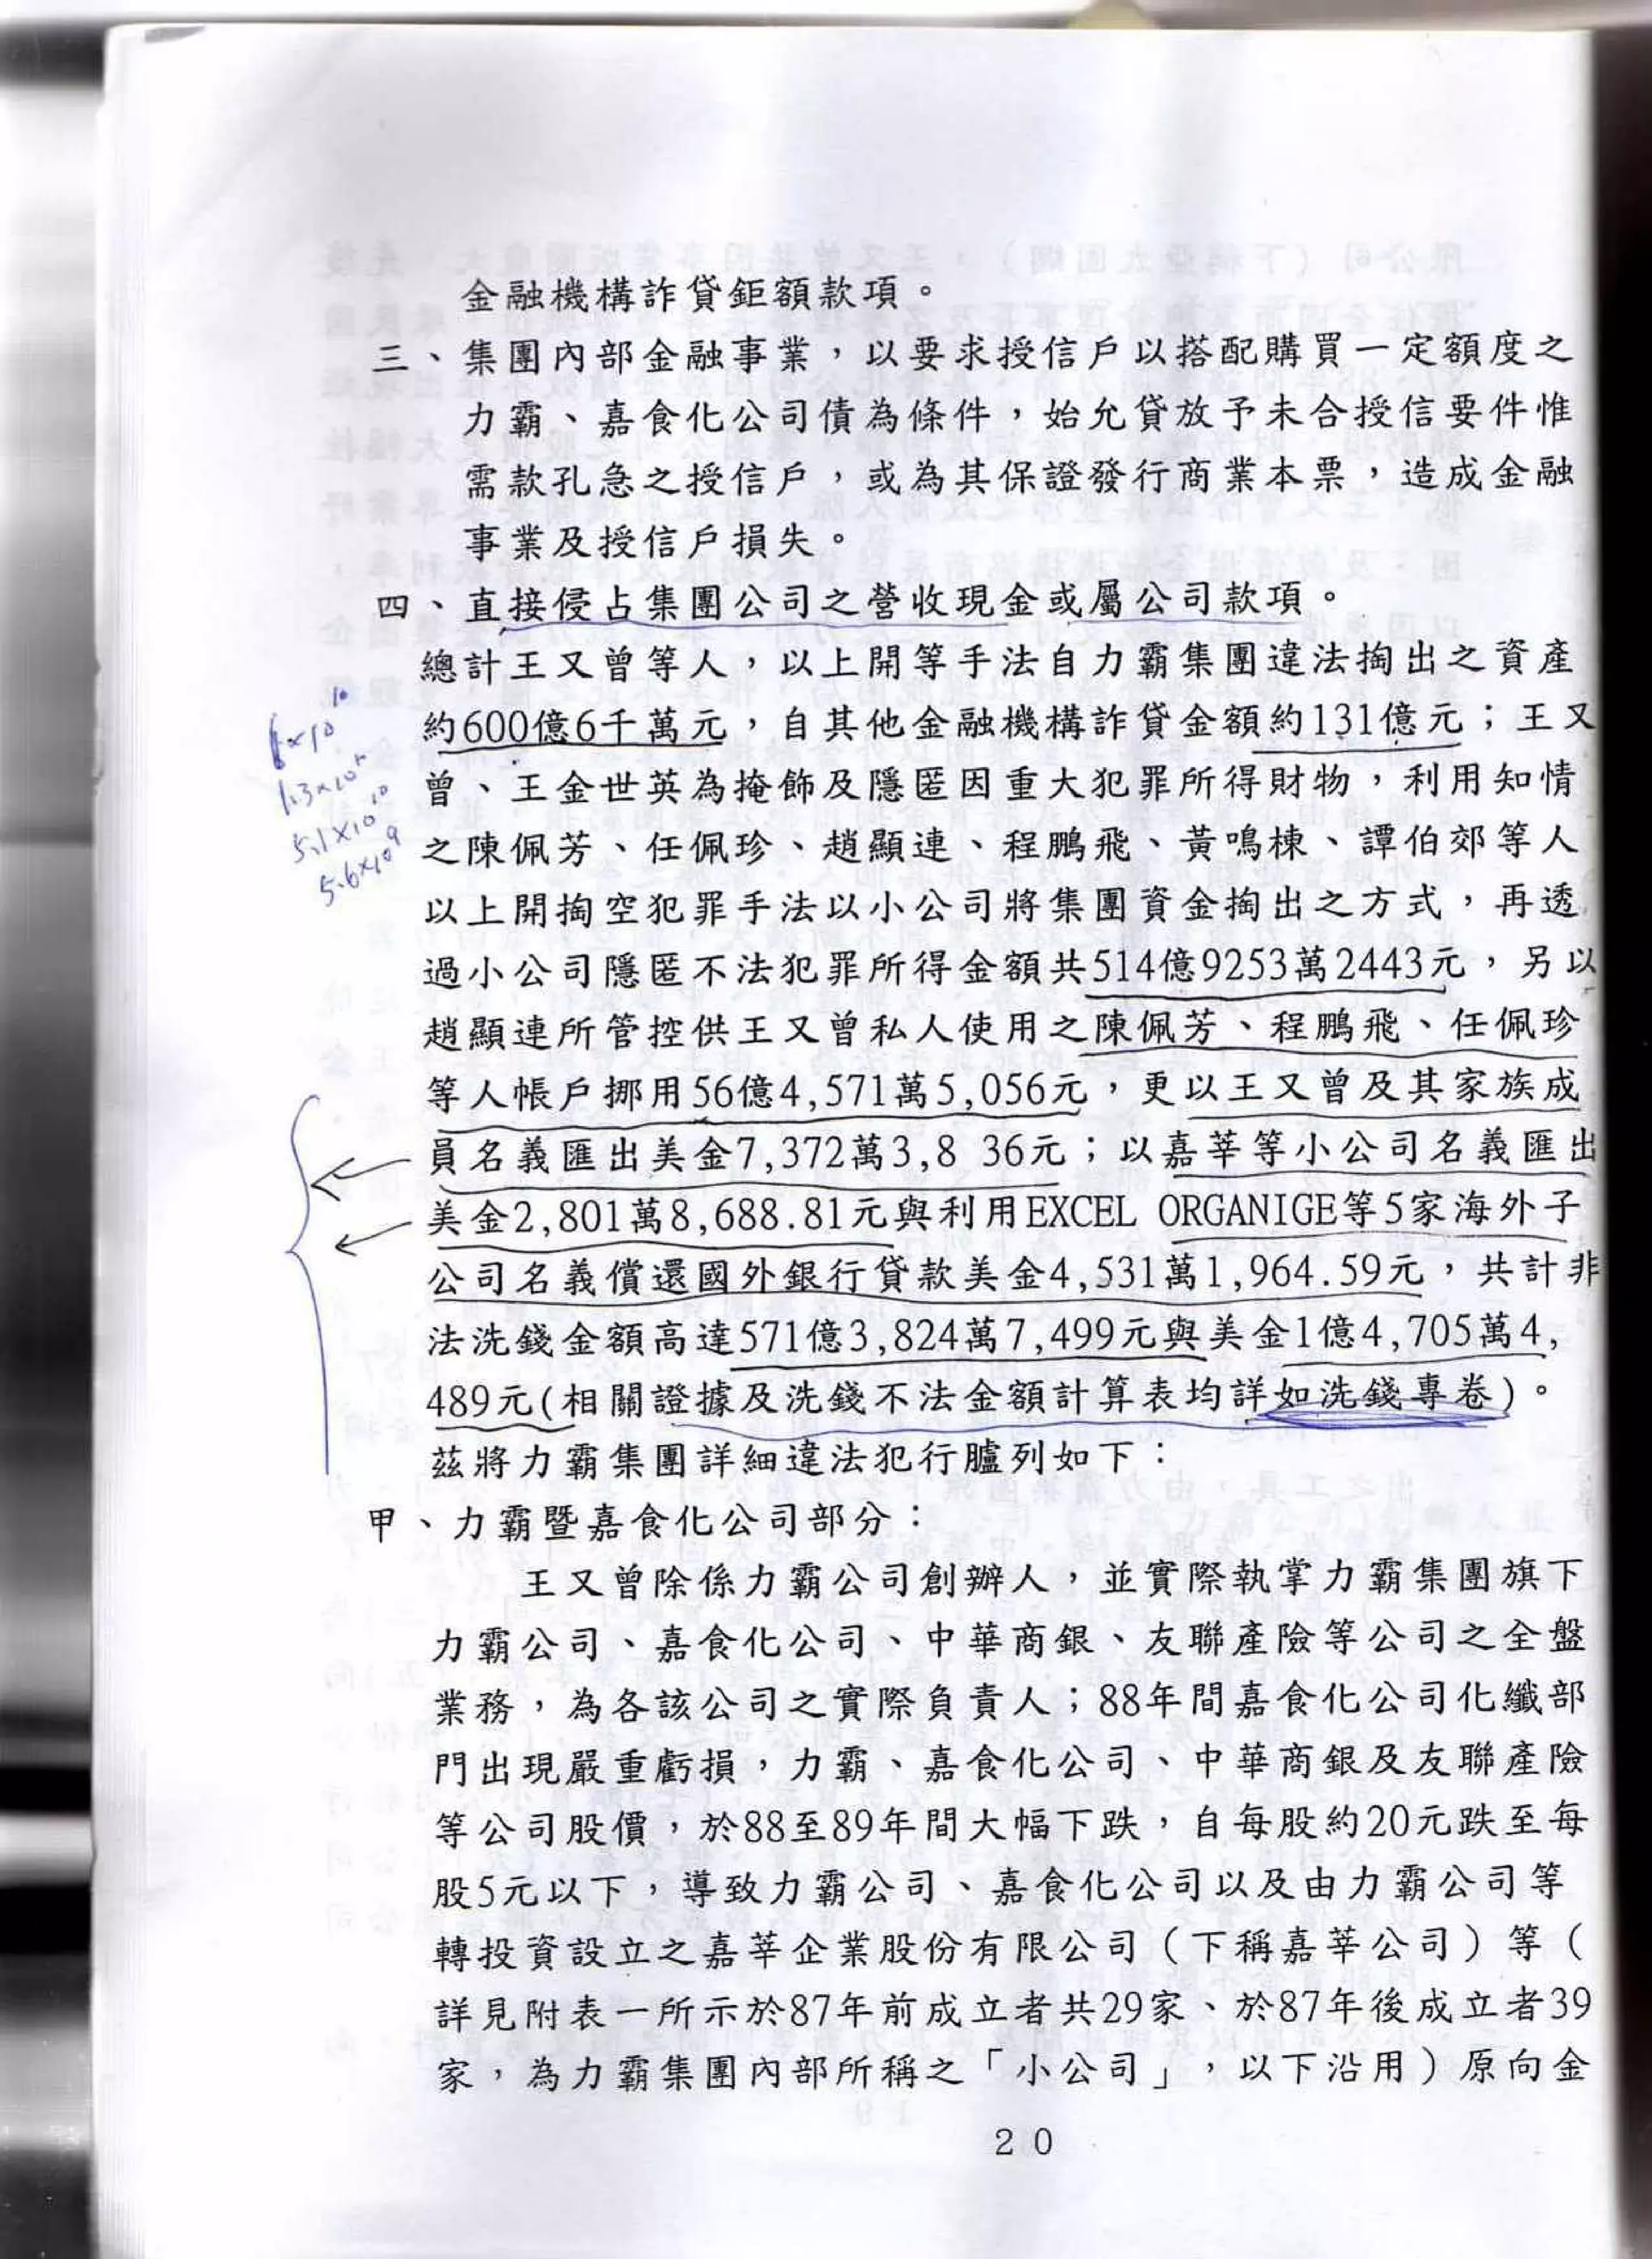 金融機構詐貸鉅額款項。
三、集團內部金融事業，以要求授信戶以搭配購買一定額度之
力霸、嘉食化公司債為條件，始允貸放予未合授信要件惟
需款孔急之授信戶，或為其保證發行商業本票，造成金融
事業及授信戶損失。
四、直接侵占集團公司之營收現金或屬公司款項。
總計王又曾等人，以上開等手法自力霸集團違法掏出之資產
約600億6千萬元，自其他金融機構詐貸金額約131億元；王又
曾、王金世英為掩飾及隱匿因重大犯罪所得財物，利用知情
之陳佩芳、任佩珍、趙顯連、程鵬飛、黃鳴棟、譚伯郊等人
以上開掏空犯罪手法以小公司將集團資金掏出之方式，再透
過小公司隱匿不法犯罪所得金額共514億9253萬2443元，另以
趙顯連所管控供王又曾私人使用之陳佩芳、程鵬飛、任佩珍
等人帳戶挪用56億4,571萬5,056元，更以王又曾及其家族成
員名義匯出美金7,372萬3,8 36元；以嘉莘等小公司名義匯出
美金2,801萬8,688.81元與利用EXCEL ORGANIGE等5家海外子
公司名義償還國外銀行貸款美金4,531萬1,964.59元，共計非
法洗錢金額高達571億3,824萬7,499元與美金1億4,705萬4,
489元(相關證據及洗錢不法金額計算表均詳如洗錢專卷)。
茲將力霸集團詳細違法犯行臚列如下：
甲、力霸暨嘉食化公司部分：
王又曾除係力霸公司創辦人，並實際執掌力霸集團旗下
力霸公司、嘉食化公司、中華商銀、友聯產險等公司之全盤
業務，為各該公司之實際負責人；88年間嘉食化公司化纖部
門出現嚴重虧損，力霸、嘉食化公司、中華商銀及友聯產險
等公司股價，於88至89年間大幅下跌，自每股約20元跌至每
股5元以下，導致力霸公司、嘉食化公司以及由力霸公司等
轉投資設立之嘉莘企業股份有限公司（下稱嘉莘公司）等（
詳見附表一所示於87年前成立者共29家、於87年後成立者39
家，為力霸集團內部所稱之「小公司」，以下沿用）原向金
20
5.1×10^10
5.6×10^9